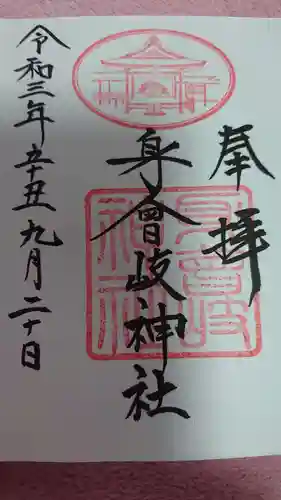 奉拝
身曾岐神社
令和三年辛丑九月二十日
身曾岐神社